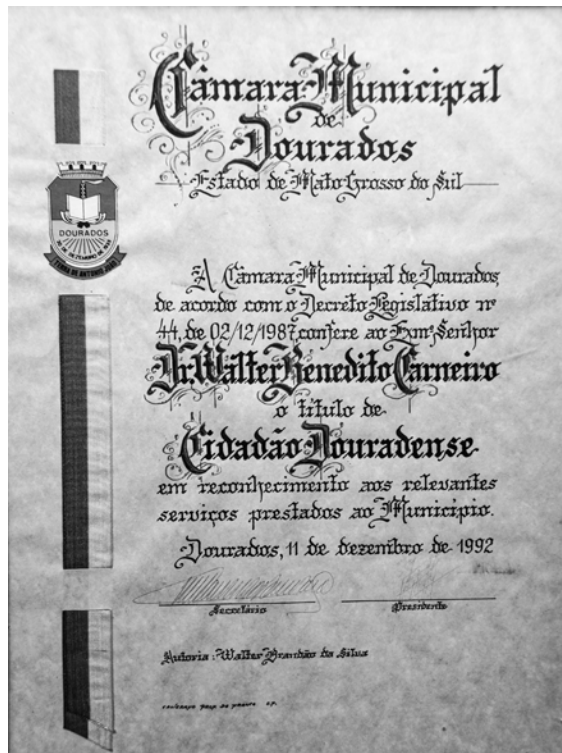 Câmara Municipal
de
Dourados
Estado de Mato Grosso do Sul
DOURADOS
20 DE DEZEMBRO DE 1935
TERRA DE ANTONIO JOÃO
A Câmara Municipal de Dourados,
de acordo com o Decreto Legislativo nº
44, de 02/12/1987, confere ao Exmº Senhor
Dr. Walter Benedito Carneiro
o título de
Cidadão Douradense
em reconhecimento aos relevantes
serviços prestados ao Município.
Dourados, 11 de dezembro de 1992
Secretário
Presidente
Autoria: Walter Brandão da Silva